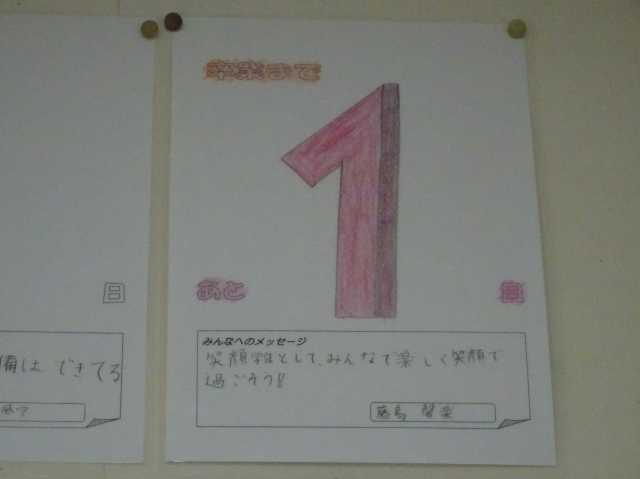 卒業まで
1
あと
日
みんなへのメッセージ
笑顔学年として、みんなで楽しく笑顔で
過ごそう!!
日
備は できてる